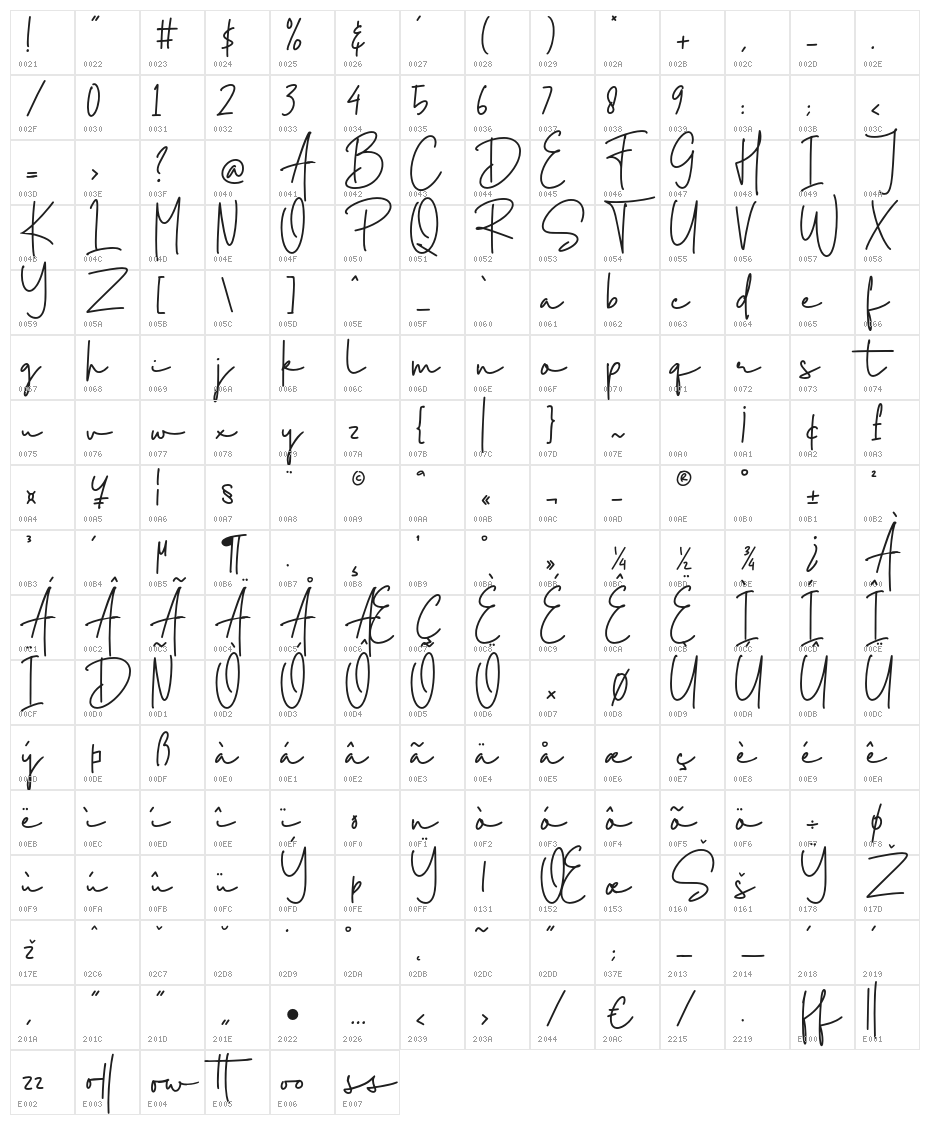 ! " # $ % & ' ( ) * + , - .
0021 0022 0023 0024 0025 0026 0027 0028 0029 002A 002B 002C 002D 002E
/ 0 1 2 3 4 5 6 7 8 9 : ; <
002F 0030 0031 0032 0033 0034 0035 0036 0037 0038 0039 003A 003B 003C
= > ? @ A B C D E F G H I J
003D 003E 003F 0040 0041 0042 0043 0044 0045 0046 0047 0048 0049 004A
K L M N O P Q R S T U V W X
004B 004C 004D 004E 004F 0050 0051 0052 0053 0054 0055 0056 0057 0058
Y Z [ \ ] ^ _ ` a b c d e f
0059 005A 005B 005C 005D 005E 005F 0060 0061 0062 0063 0064 0065 0066
g h i j k l m n o p q r s t
0067 0068 0069 006A 006B 006C 006D 006E 006F 0070 0071 0072 0073 0074
u v w x y z { | } ~ ¡ ¢ £
0075 0076 0077 0078 0079 007A 007B 007C 007D 007E 00A0 00A1 00A2 00A3
¤ ¥ ¦ § ¨ © ª « ¬ - ® ° ± ²
00A4 00A5 00A6 00A7 00A8 00A9 00AA 00AB 00AC 00AD 00AE 00B0 00B1 00B2
³ ´ µ ¶ · ¸ ¹ º » ¼ ½ ¾ ¿ À
00B3 00B4 00B5 00B6 00B7 00B8 00B9 00BA 00BB 00BC 00BD 00BE 00BF 00C0
Á Â Ã Ä Å Æ Ç È É Ê Ë Ì Í Î
00C1 00C2 00C3 00C4 00C5 00C6 00C7 00C8 00C9 00CA 00CB 00CC 00CD 00CE
Ï Ð Ñ Ò Ó Ô Õ Ö × Ø Ù Ú Û Ü
00CF 00D0 00D1 00D2 00D3 00D4 00D5 00D6 00D7 00D8 00D9 00DA 00DB 00DC
ý Þ ß à á â ã ä å æ ç è é ê
00DD 00DE 00DF 00E0 00E1 00E2 00E3 00E4 00E5 00E6 00E7 00E8 00E9 00EA
ë ì í î ï ð ñ ò ó ô õ ö ÷ ø
00EB 00EC 00ED 00EE 00EF 00F0 00F1 00F2 00F3 00F4 00F5 00F6 00F7 00F8
ù ú û ü Ý þ Ÿ ı Œ œ Š š Ÿ Ž
00F9 00FA 00FB 00FC 00FD 00FE 00FF 0131 0152 0153 0160 0161 0178 017D
ž ˆ ˇ ˘ ˙ ˚ ˛ ˜ ˝ ; – — ‘ ’
017E 02C6 02C7 02D8 02D9 02DA 02DB 02DC 02DD 037E 2013 2014 2018 2019
‚ “ ” „ • … ‹ › ⁄ € ∕ ∙ ff ll
201A 201C 201D 201E 2022 2026 2039 203A 2044 20AC 2215 2219 E000 E001
zz oll ow tt oo ss
E002 E003 E004 E005 E006 E007